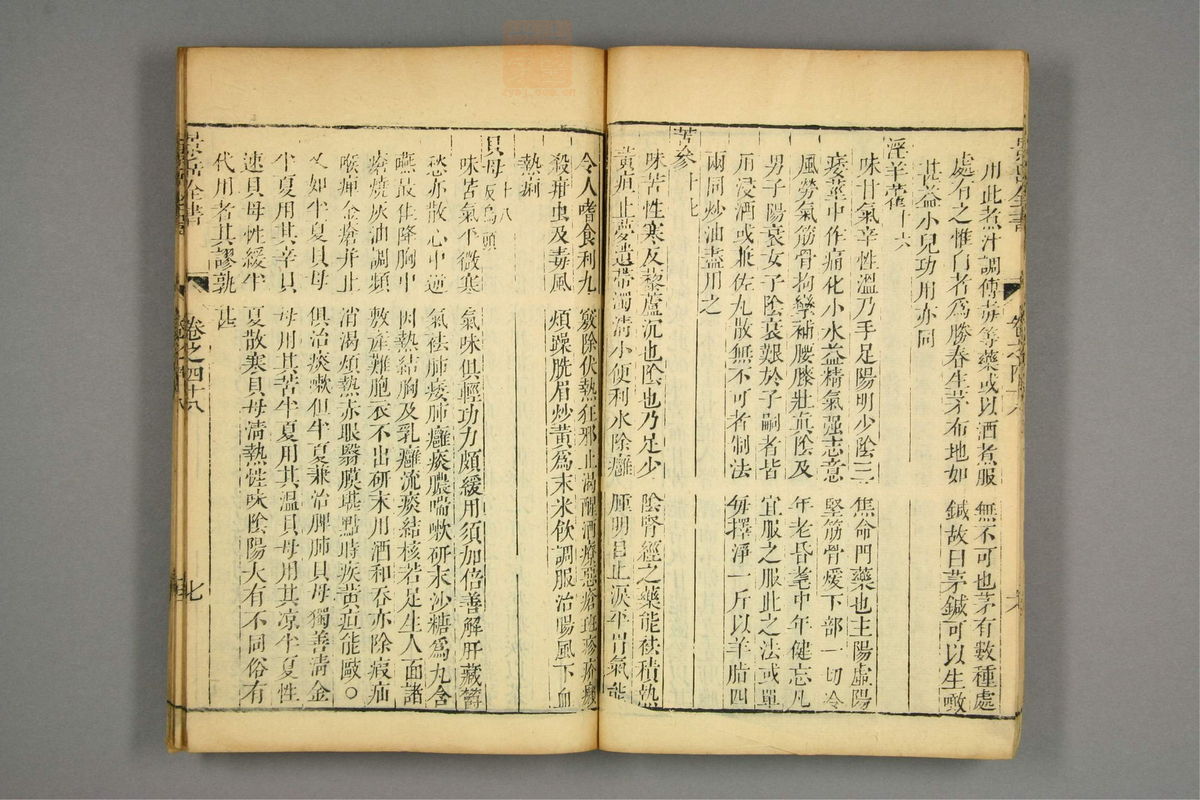 用此煮汁調傅苽等藥或以酒煮服無不可也茅有數種處
處有之惟白者為勝春生芽布地如鍼故曰茅鍼可以生噉
甚益小兒功用亦同
淫羊藿十六
味甘氣辛性溫乃手足陽明少陰三焦命門藥也主陽虛陽
痿莖中作痛化小水益精氣强志意堅筋骨煖下部一切冷
風勞氣筋骨拘攣補腰膝壯真陰及年老昏耄中年健忘凡
男子陽衰女子陰衰艱於子嗣者皆宜服之服此之法或單
用浸酒或兼佐丸散無不可者制法每擇淨一斤以羊脂四
兩同炒油盡用之
苦參十七
味苦性寒反藜蘆沉也陰也乃足少陰腎經之藥能祛積熱
黃疸止夢遺帶濁清小便利水除癰腫明目止淚平胃氣能
令人嗜食利九竅除伏熱狂邪止渴醒酒療惡瘡斑疹疥癩
殺疳虫及毒風煩躁脫眉炒黃為末米飲調服治腸風下血
熱痢
貝母反烏頭十八
味苦氣平微寒氣味俱輕功力頗緩用須加倍善解肝藏鬱
愁亦散心中逆氣祛肺痿肺癰痰膿喘嗽研末沙糖為丸含
嚥最佳降胸中因熱結胸及乳癰流痰結核若足生人面諸
瘡燒灰油調頻敷產難胞衣不出研末用酒和吞亦除瘕疝
喉痺金瘡并止消渴煩熱赤眼翳膜堪點時疾黃疸能敺○
又如半夏貝母俱治痰嗽但半夏兼治脾肺貝母獨善清金
半夏用其辛貝母用其苦半夏用其溫貝母用其凉半夏性
速貝母性緩半夏散寒貝母清熱性味陰陽大有不同俗有
代用者其謬孰甚
景岳全書
卷之四十八
七